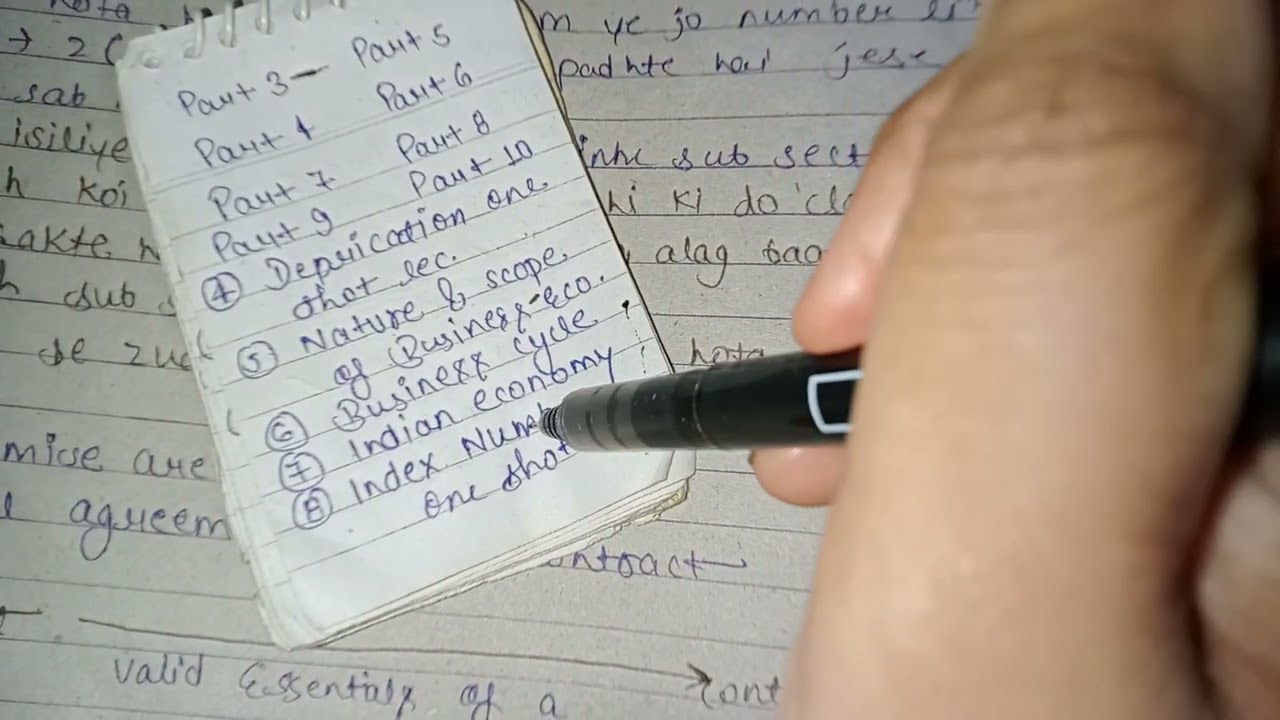 m ye jo number
→ 2(
sab
padhte hai jese
isiliye
inhe sub sect
h koi
hi ki do cla
sakte h
alag
h sub
se
hota
Part 3 — Part 5
Part 4 Part 6
Part 7 Part 8
Part 9 Part 10
④ Depriciation one
shot lec.
⑤ Nature & scope
of Business-eco.
⑥ Business cycle
⑦ Indian economy
⑧ Index Num
one shot
mise are
agreem
ontract
valid Essentials of a
Cont